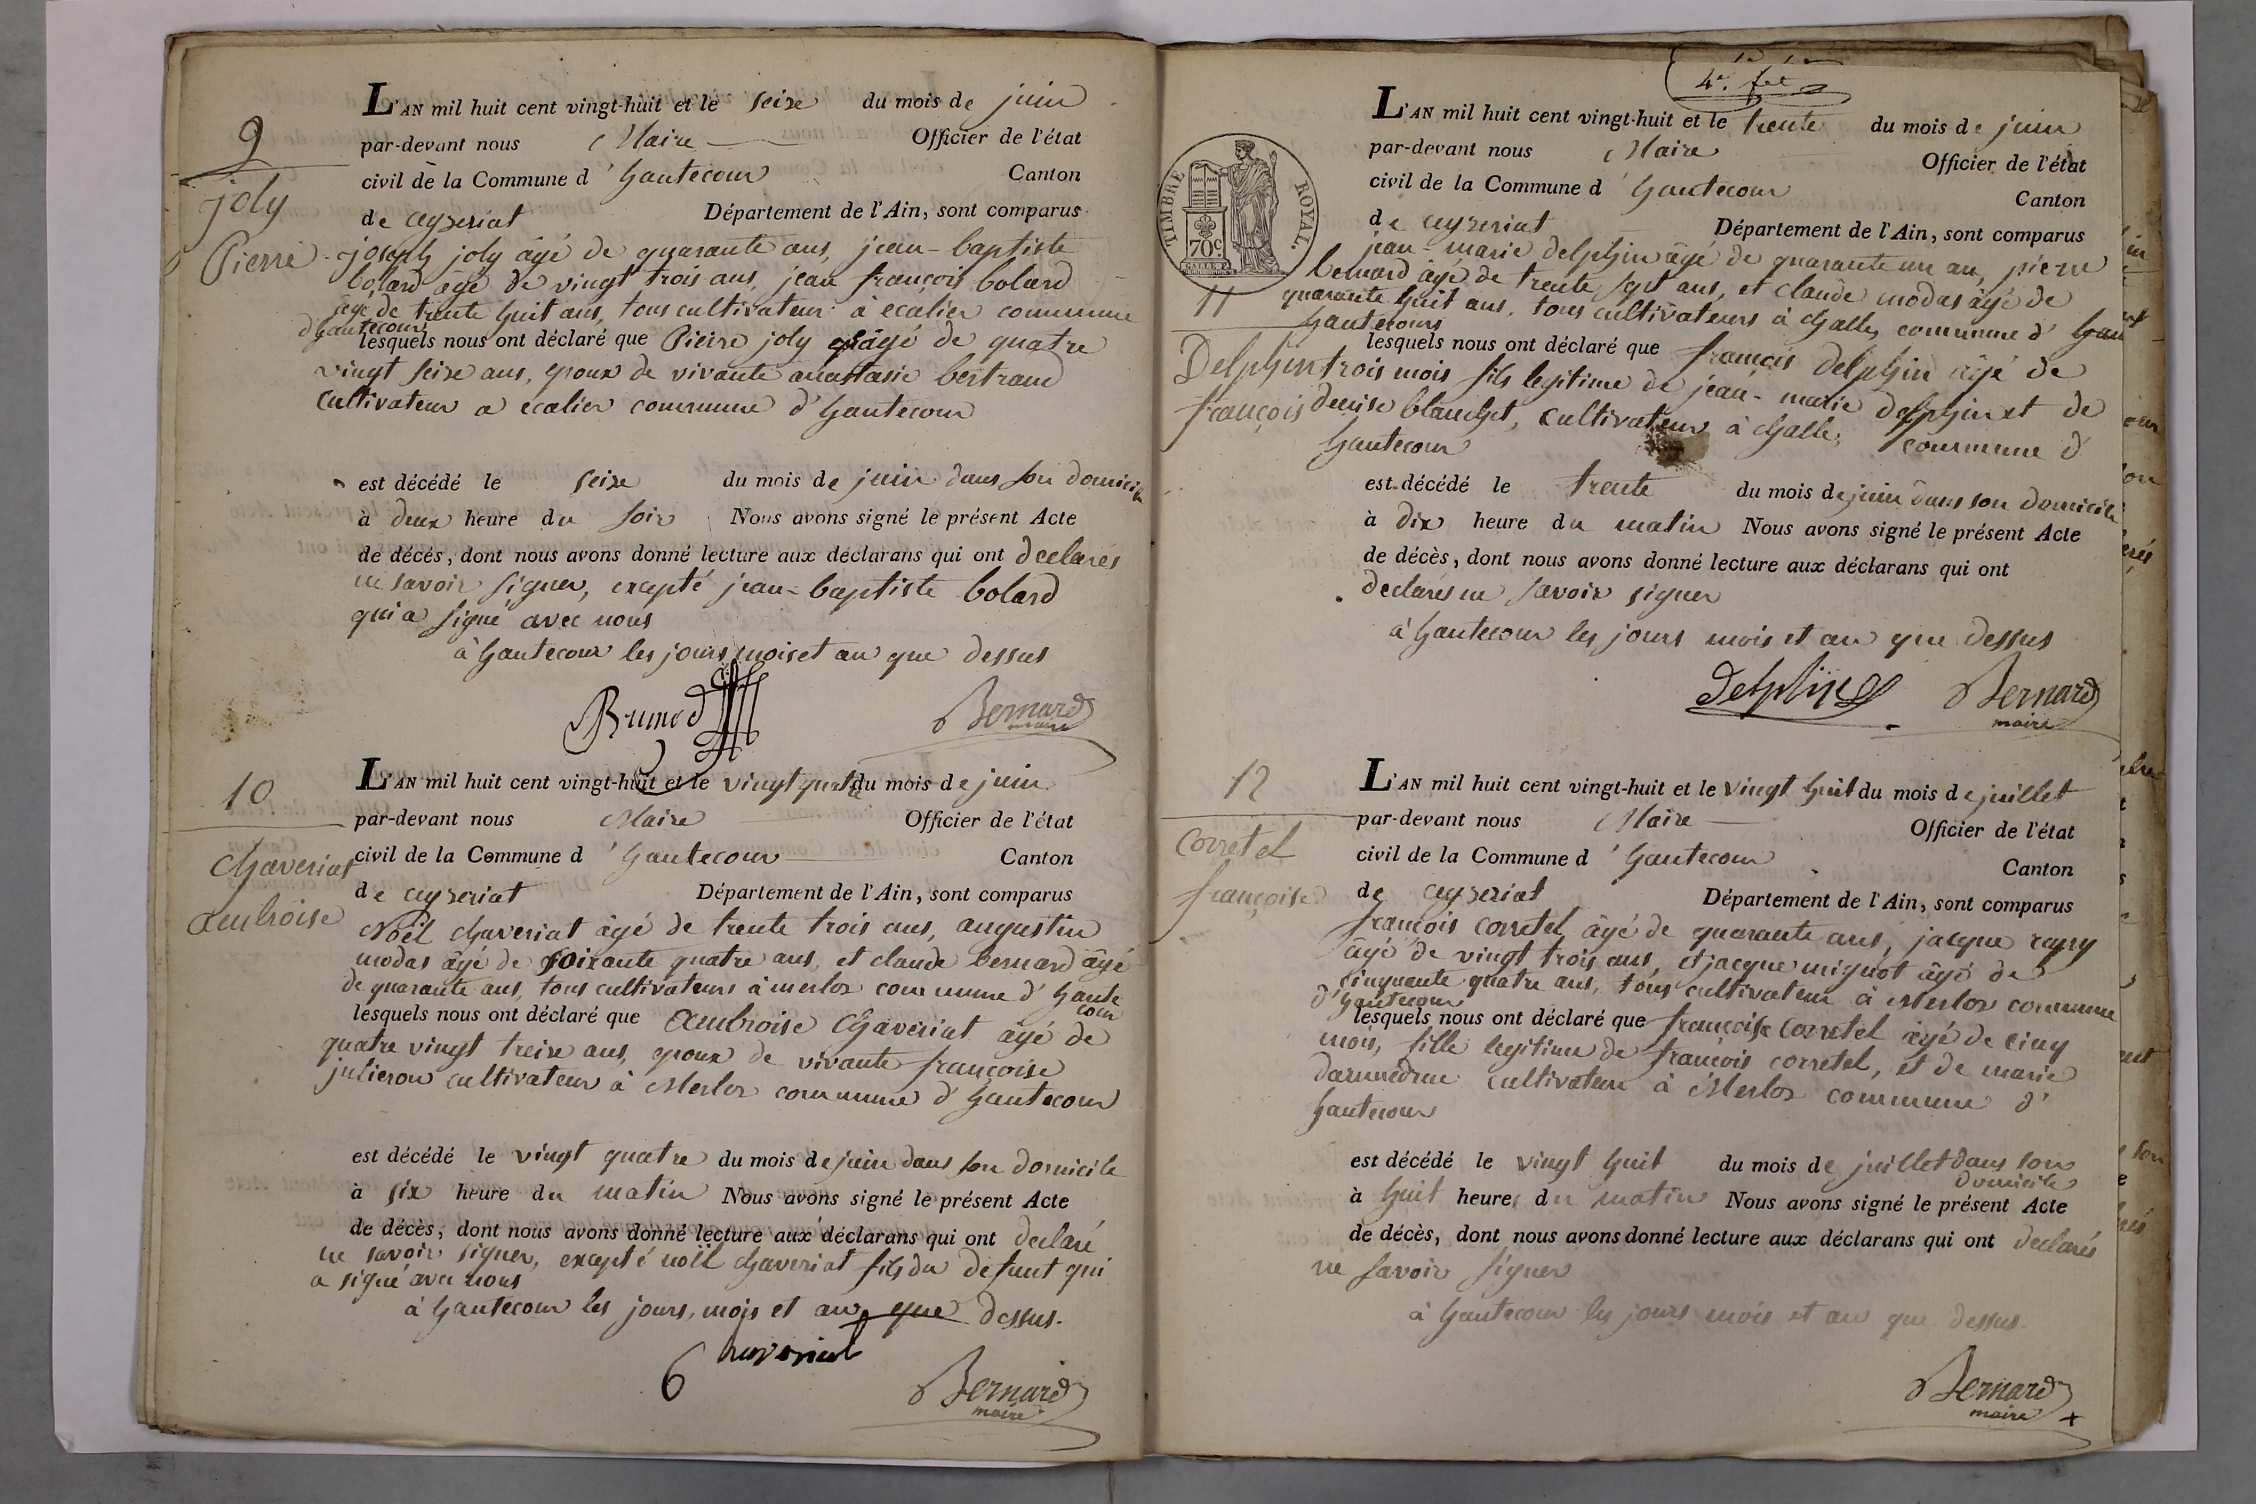 9
joly
Pierre
L'AN mil huit cent vingt-huit et le seize du mois de juin
par-devant nous Maire Officier de l'état
civil de la Commune d'hautecour Canton
de ceyzeriat Département de l'Ain, sont comparus
joseph joly âgé de quarante ans, jean-baptiste
bolard âgé de vingt trois ans, jean françois bolard
âgé de trente huit ans, tous cultivateur à ecalier commune
d'hautecour
lesquels nous ont déclaré que Pierre joly âgé de quatre
vingt seize ans, epoux de vivante anastasie bertrand
cultivateur a ecalier commune d'hautecour
est décédé le seize du mois de juin dans son domicile
à deux heure du soir Nous avons signé le présent Acte
de décès, dont nous avons donné lecture aux déclarans qui ont declarés
ne savoir signer, excepté jean-baptiste bolard
qui a signé avec nous
à hautecour les jours mois et an que dessus
Bernard
maire
10
chaveriat
ambroise
L'AN mil huit cent vingt-huit et le vingt quatre du mois de juin
par-devant nous Maire Officier de l'état
civil de la Commune d'hautecour Canton
de ceyzeriat Département de l'Ain, sont comparus
Noël chaveriat âgé de trente trois ans, augustin
modas âgé de soixante quatre ans, et claude bernard âgé
de quarante ans, tous cultivateurs à merloz commune d'haute
cour
lesquels nous ont déclaré que ambroise chaveriat âgé de
quatre vingt treize ans, epoux de vivante françoise
julieron cultivateur à Merloz commune d'hautecour
est décédé le vingt quatre du mois de juin dans son domicile
à six heure du matin Nous avons signé le présent Acte
de décès, dont nous avons donné lecture aux déclarans qui ont declaré
ne savoir signer, excepté noël chaveriat fils du defunt qui
a signé avec nous
à hautecour les jours, mois et an que dessus.
Chaveriat
Bernard
maire
4e. fet
TIMBRE ROYAL.
70c
11
Delphin
françois
L'AN mil huit cent vingt-huit et le trente du mois de juin
par-devant nous Maire Officier de l'état
civil de la Commune d'hautecour Canton
de ceyzeriat Département de l'Ain, sont comparus
jean-marie delphin âgé de quarante un an, pierre
bernard âgé de trente sept ans, et claude modas âgé de
quarante huit ans, tous cultivateurs à challes commune d'hau
hautecours
lesquels nous ont déclaré que françois delphin âgé de
trois mois fils legitime de jean-marie delphin et de
denise blanchet, cultivateur à challes commune d'
hautecour
est décédé le trente du mois de juin dans son domicile
à dix heure du matin Nous avons signé le présent Acte
de décès, dont nous avons donné lecture aux déclarans qui ont
declarés ne savoir signer
à hautecour les jours mois et an que dessus
Delphin Bernard
maire
12
corretel
françoise
L'AN mil huit cent vingt-huit et le vingt huit du mois de juillet
par-devant nous Maire Officier de l'état
civil de la Commune d'hautecour Canton
de ceyzeriat Département de l'Ain, sont comparus
françois corretel âgé de quarante ans, jacque
âgé de vingt trois ans, et jacque mignot âgé de
cinquante quatre ans, tous cultivateur à Merloz commune
d'hautecour
lesquels nous ont déclaré que françoise corretel âgé de cinq
mois, fille legitime de françois corretel, et de marie
cultivateur à Merloz commune d'
hautecour
est décédé le vingt huit du mois de juillet dans son
domicile
à huit heure du matin Nous avons signé le présent Acte
de décès, dont nous avons donné lecture aux déclarans qui ont declarés
ne savoir signer
à hautecour les jours mois et an que dessus
Bernard
maire